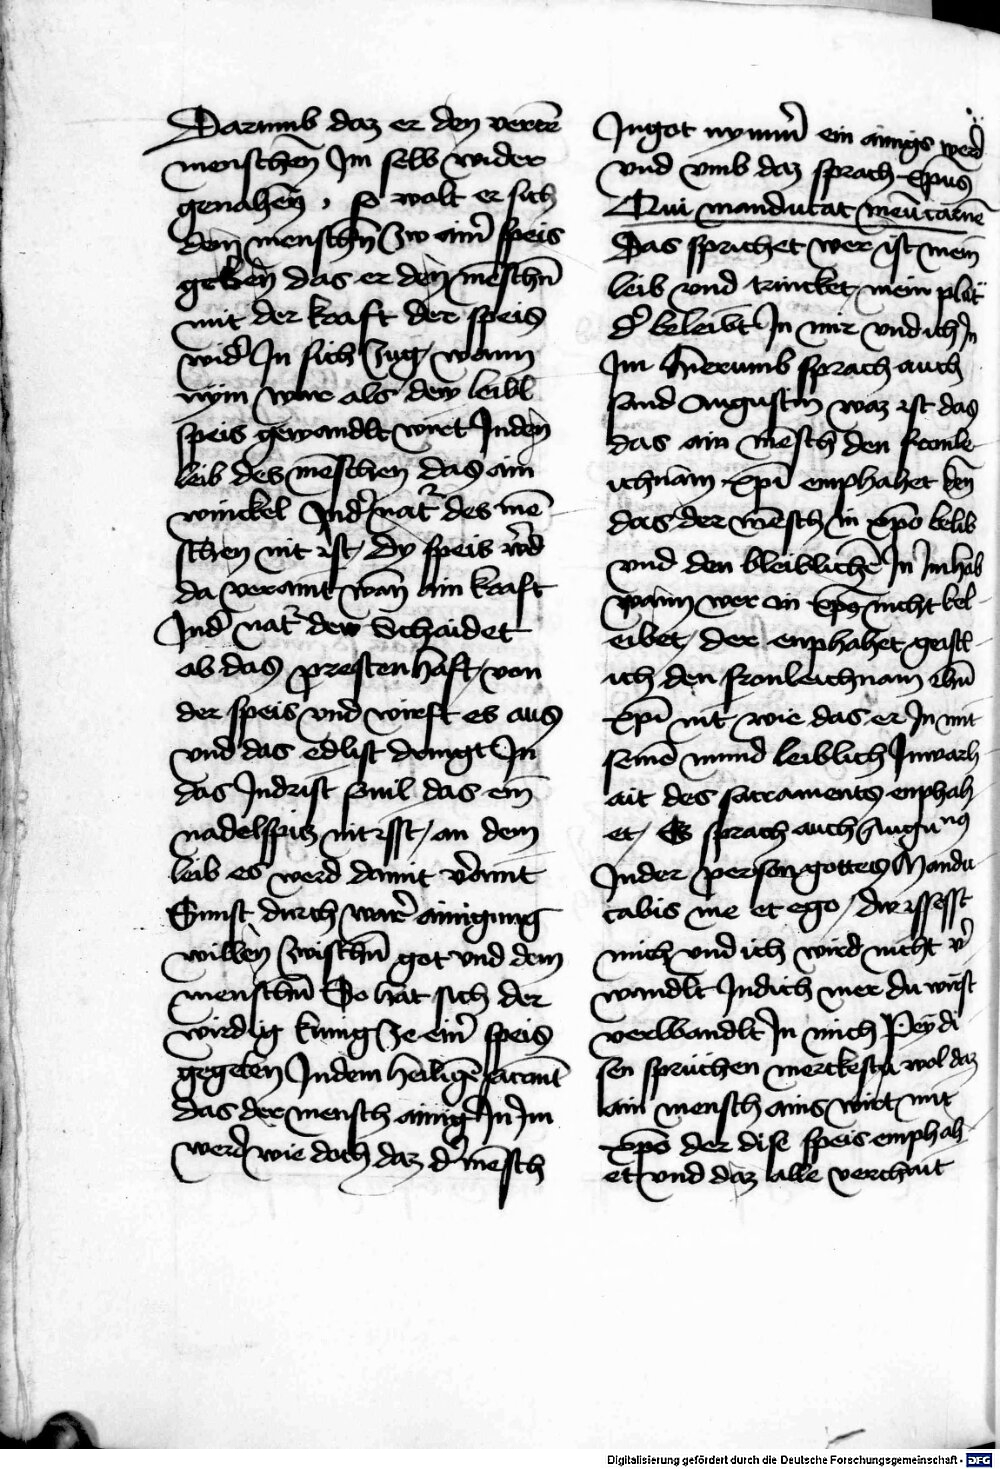 Darumb daz er den vertrē
menschen Im selb wider
genahen, so wolt er sich
dem menschn̄ zw aim̄ speis
geben das er den mēschn̄
mit der kraft der speis
wid' In sich zug wann
nym war als dew leibl
speis gewandlt wirt Inden
leib des mēschen das ain
winckel Ind' nat' des mē
schen nit ist, dy speis w'd
da veraint wan̄ ain kraft
Ind' nat' dew Schaidet
ab das presten haft von
der speis und wirft es aus
und das edlist dringt In
das Indrist das ein
nadelspitz nit isst, an dem
leib es werd damit v'aint
Sunst durch war' ainigung
willen zwischn̄ got und dem
menschn̄ So hat sich der
wirdig kunig ze ein' speis
gegeben Indem heiligē sacramt
das der mensch ainig' In Im
werd wie doch daz d' mēsch
Ingot nymm' ein ainigs werd
und umb daz sprach xp̄us
Qui manducat meū carnē
Das sprichet wer ist mein
leib und trincket mein plut
d' beleibt In mir und ich In
Im Hierumb sprach auch
sand Augustin waz ist das
das ain mēsch den fronle
ichnam xp̄i emphahet den
das der mēsch in xp̄o belib
und den bleiblichē In Imhab
wann wer in xp̄o nicht bel
eibet, der enphahet geistl
ich den fronleichnam ihū
xp̄i nit, wie das er In mit
seinē mund leiblich Inwarh
ait des sacraments enphah
et, Es sprach auch Augu nus
Inder person gottes Mandu
cabis me et ego, dw issesst
mich und ich wird nicht v'
wandlt Indich mer du wirst
verwandlt In mich Pey di
sen sprüchen merckestu wol daz
ain mensch ains wirt mit
xp̄o der dise speis emphah
et und daz alle